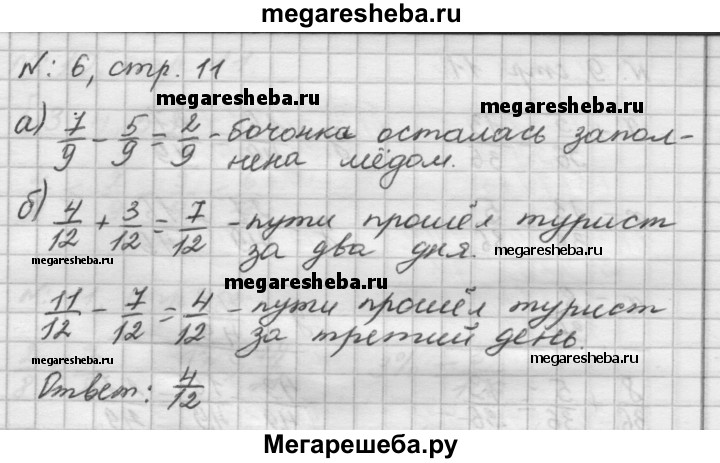 megaresheba.ru
№: 6, стр. 11
megaresheba.ru
megaresheba.ru
а) 7/9 - 5/9 = 2/9 - бочонка осталась запол-
нена мёдом.
б) 4/12 + 3/12 = 7/12 - пути прошёл турист
за два дня.
megaresheba.ru
megaresheba.ru
megaresheba.ru
11/12 - 7/12 = 4/12 - пути прошёл турист
за третий день.
megaresheba.ru
megaresheba.ru
Ответ: 4/12
Мегарешеба.ру